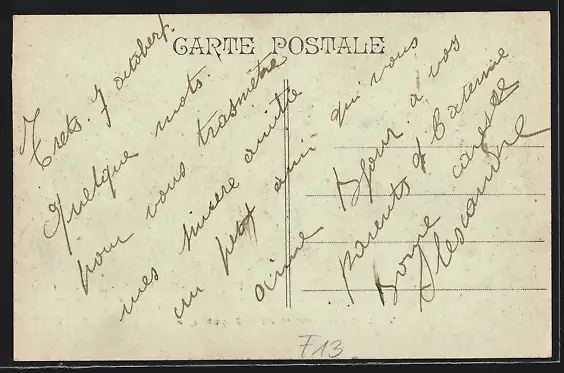 CARTE POSTALE
Trets. 7 octobert.
Quelque mots.
pour vous trasmetre
mes sincere amitié
un petit ami qui vous
aime Bjour. a vos
parents et Caterine
Bonne caresse
Alexandre
F13